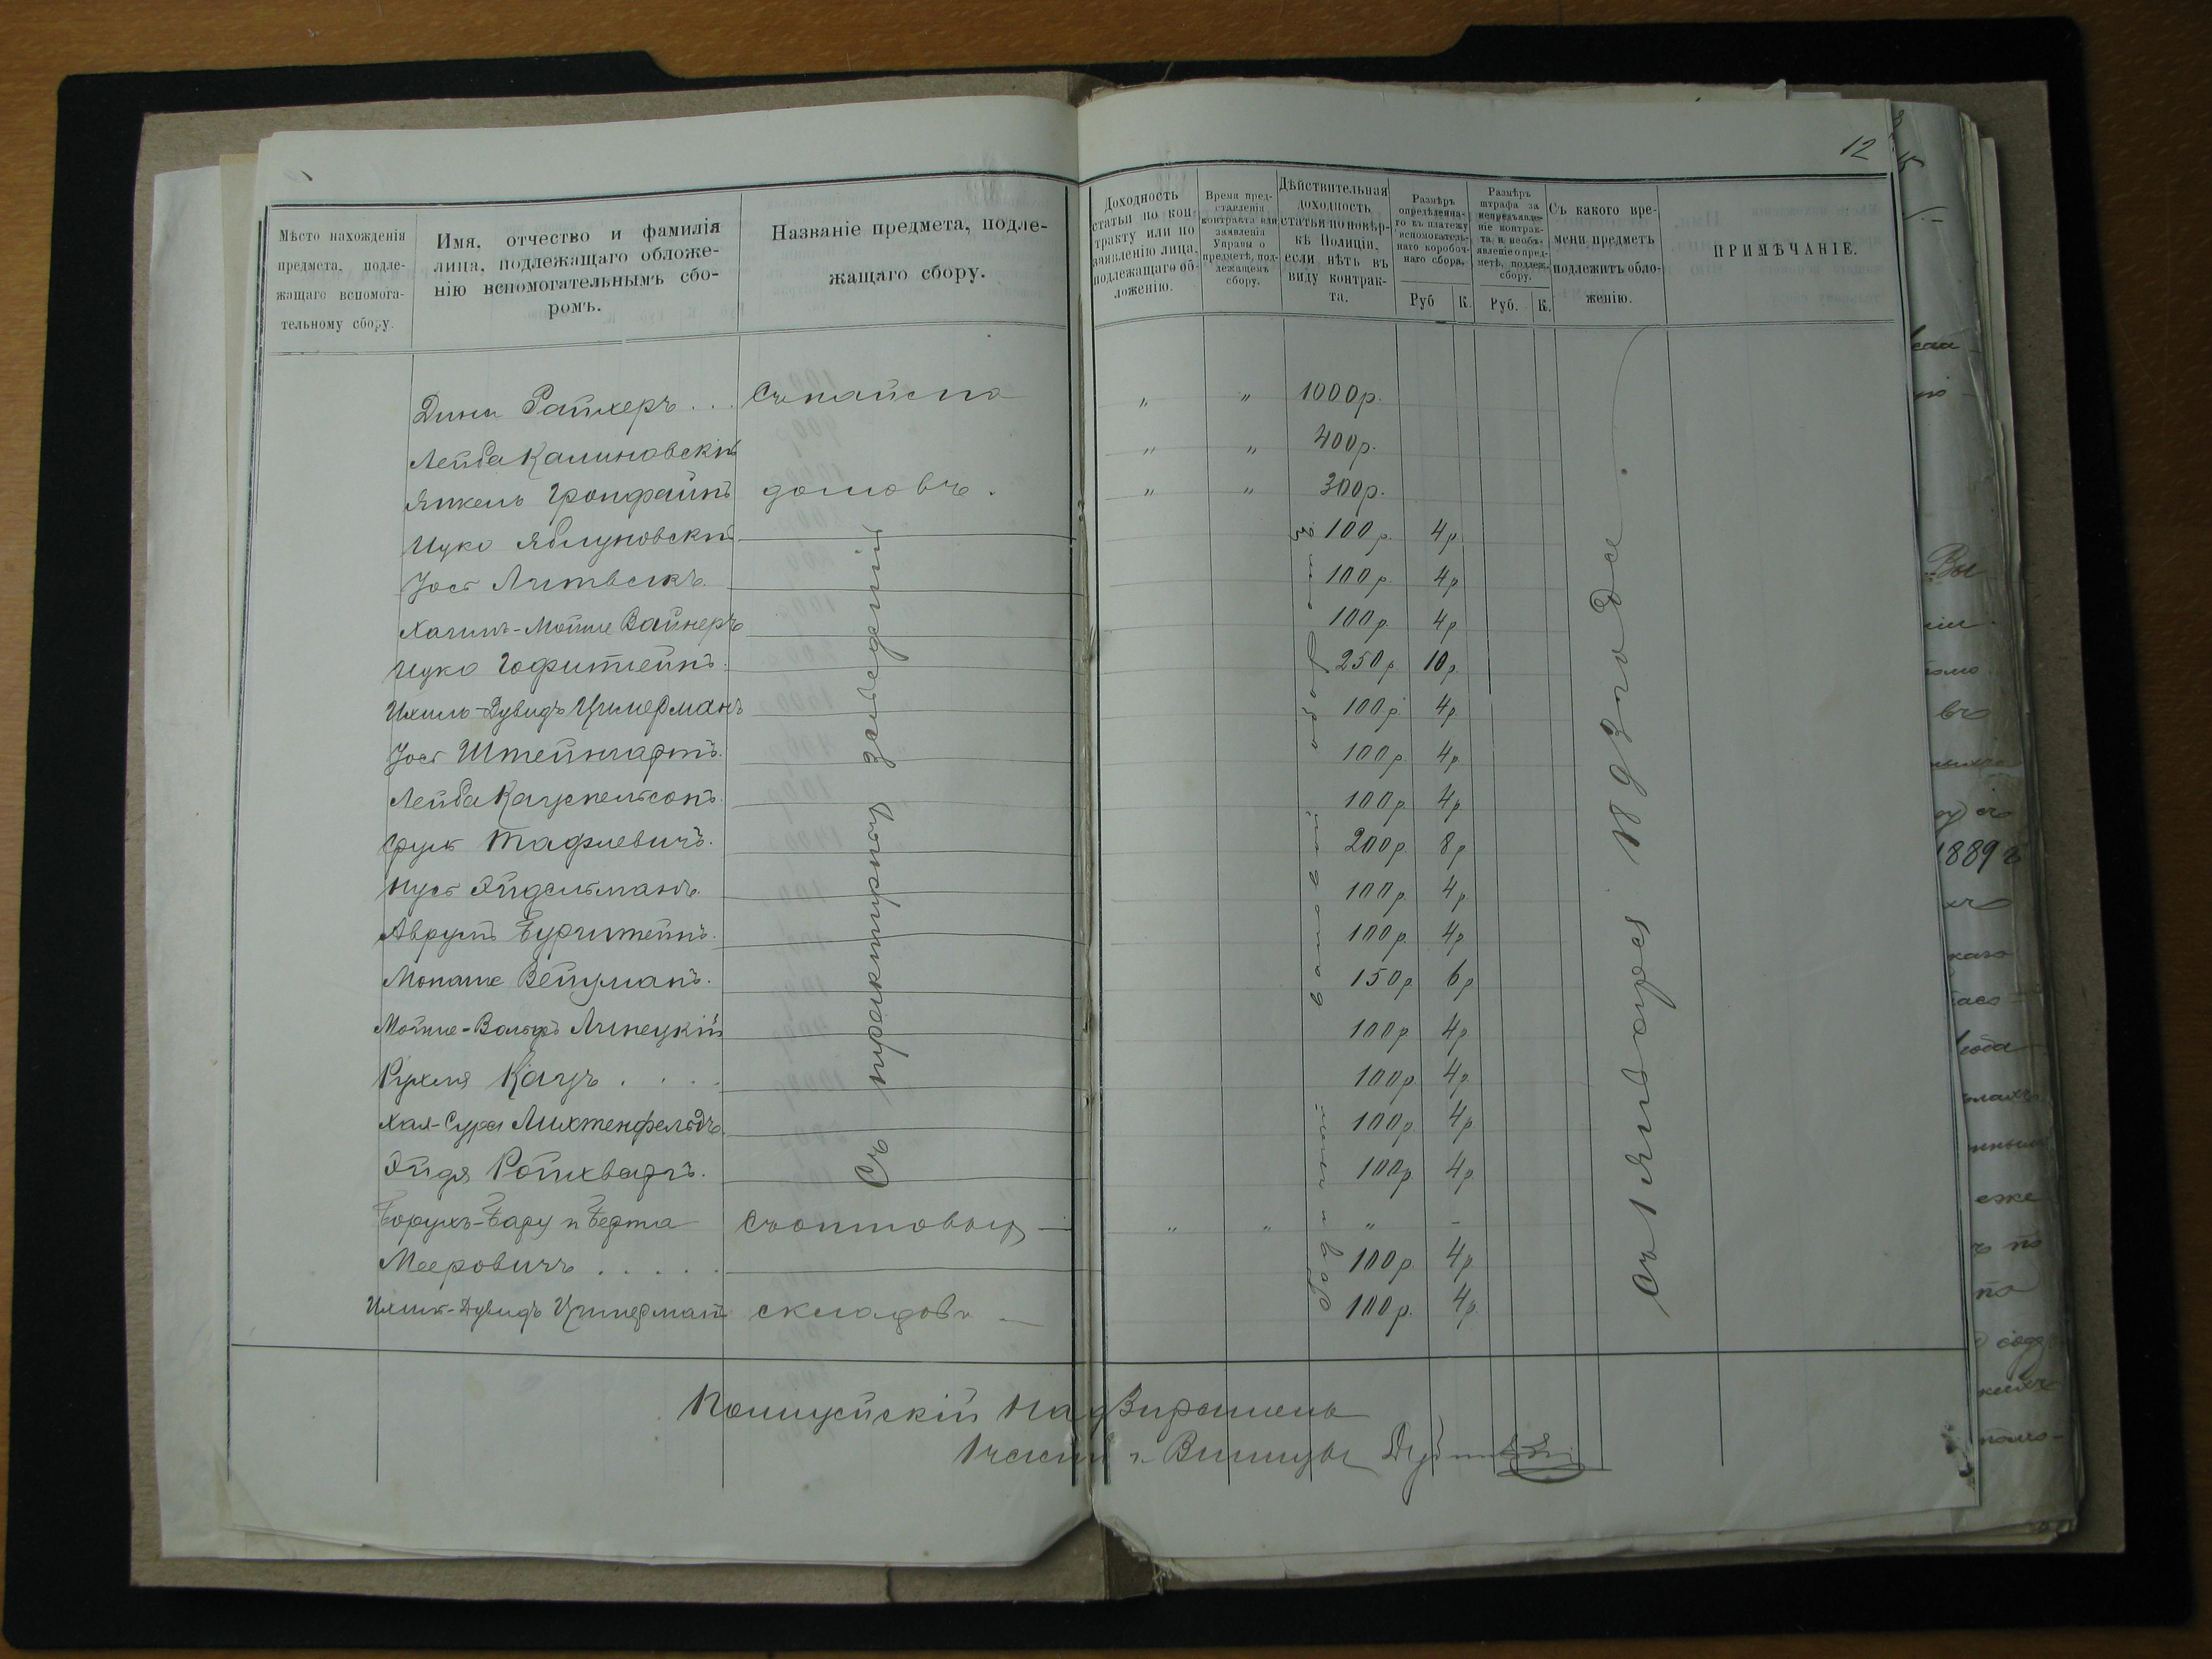 12
Мѣсто нахожденія
предмета, подле-
жащаго вспомога-
тельному сбору.
Имя, отчество и фамилія
лица, подлежащаго обложе-
нію вспомогательнымъ сбо-
ромъ.
Названіе предмета, подле-
жащаго сбору.
Доходность
статьи по кон-
тракту или по
заявленію лица,
подлежащаго об-
ложенію.
Время пред-
ставленія
контракта или
заявленія
Управы о
предметѣ, под-
лежащемъ
сбору.
Дѣйствительная
доходность
статьи по повѣр-
кѣ Полиціи,
если нѣтъ въ
виду контрак-
та.
Размѣръ
опредѣленна-
го къ платежу
вспомогатель-
наго коробоч-
наго сбора.
Руб К.
Размѣръ
штрафа за
непредъявле-
ніе контрак-
та и необъ-
явленіе о пред-
метѣ, подлеж.
сбору.
Руб. К.
Съ какого вре-
мени предметъ
подлежитъ обло-
женію.
ПРИМѢЧАНІЕ.
Дина Райхеръ . . . Съ найма " " 1000р.
Лейба Калиновскій " " 400р.
Янкель Гронфайнъ домовъ. " " 300р.
Ицко Яблуновскій 100р. 4р
Іось Литвакъ 100р. 4р
Хаимъ-Мойше Вайнеръ 100р. 4р
Ицко Гофштейнъ 250р 10р.
Ихиль-Дувидъ Цимерманъ 100р. 4р.
Іось Штейнгартъ. 100р. 4р.
Лейба Кацнельсонъ. 100р. 4р.
200р. 8р
Нусь Эйдельманъ. 100р. 4р.
Аврумъ Бурштейнъ. 100р. 4р.
Монаше Вейцманъ. 150р. 6р
Мойше-Вольфъ Линецкій 100р 4р.
Рухля Кацъ . . . . 100р. 4р.
Хая-Сура Лихтенфельдъ. 100р. 4р
Эйдя Ройхваргъ. 100р. 4р.
Борухъ-Бару и Берта Съ оптовыхъ " " " -
Мееровичъ . . . . . 100р. 4р.
Ихиль-Дувидъ Цимерманъ складовъ 100р. 4р.
Съ трактирныхъ заведеній
Годовой валовой
Съ 1 Января 1893 года.
Полицейскій Надзиратель
1 части г. Винницы
1889 г